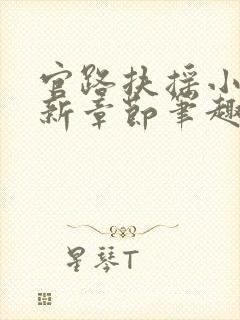 官路扶摇小
新章节笔趣
星琴T